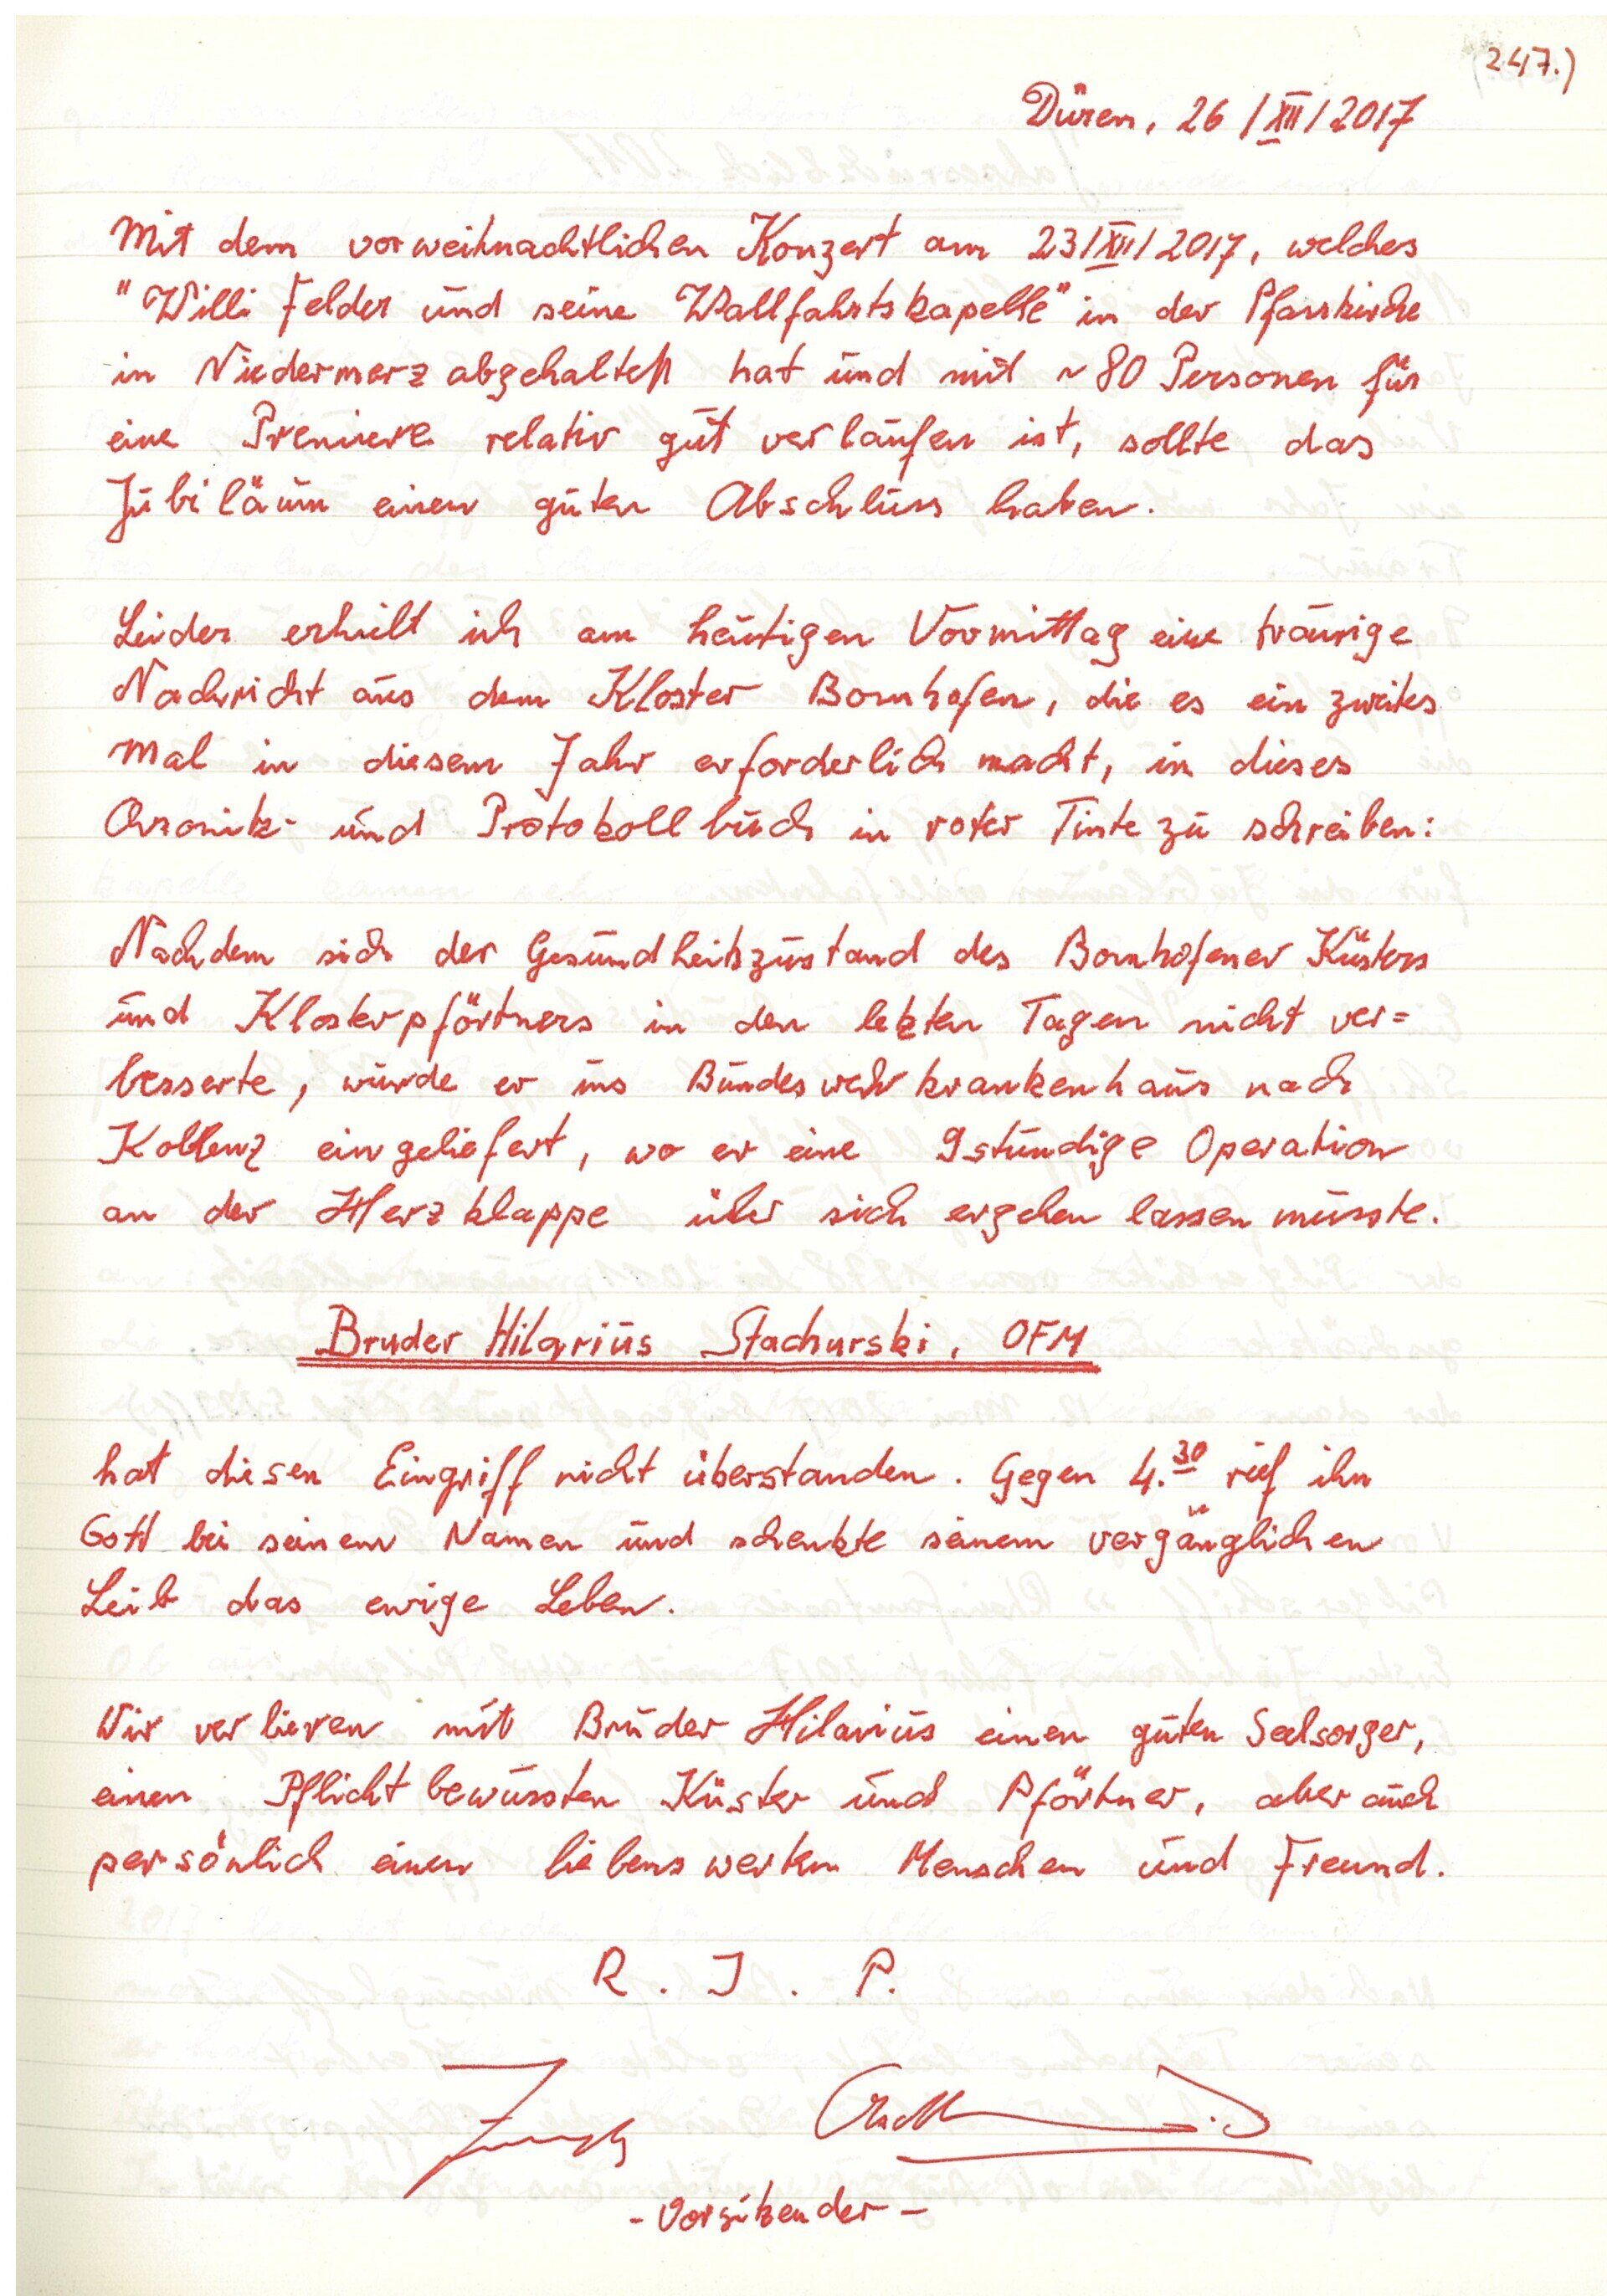 247.)
Düren, 26/XII/2017
Mit dem vorweihnachtlichen Konzert am 23/XII/2017, welches
"Willi Felder und seine Wallfahrtskapelle" in der Pfarrkirche
in Niedermerz abgehalten hat und mit ~ 80 Personen für
eine Premiere relativ gut verlaufen ist, sollte das
Jubiläum einen guten Abschluss haben.
Leider erhielt ich am heutigen Vormittag eine traurige
Nachricht aus dem Kloster Bornhofen, die es ein zweites
Mal in diesem Jahr erforderlich macht, in dieses
Chronik- und Protokollbuch in roter Tinte zu schreiben:
Nachdem sich der Gesundheitszustand des Bornhofener Küsters
und Klosterpförtners in den letzten Tagen nicht ver=
besserte, wurde er ins Bundeswehrkrankenhaus nach
Koblenz eingeliefert, wo er eine 9stündige Operation
an der Herzklappe über sich ergehen lassen musste.
Bruder Hilarius Stachurski, OFM
hat diesen Eingriff nicht überstanden. Gegen 4.30 rief ihn
Gott bei seinem Namen und schenkte seinem vergänglichen
Leib das ewige Leben.
Wir verlieren mit Bruder Hilarius einen guten Seelsorger,
einen Pflichtbewussten Küster und Pförtner, aber auch
persönlich einen liebenswerten Menschen und Freund.
R. I. P.
- Vorsitzender -